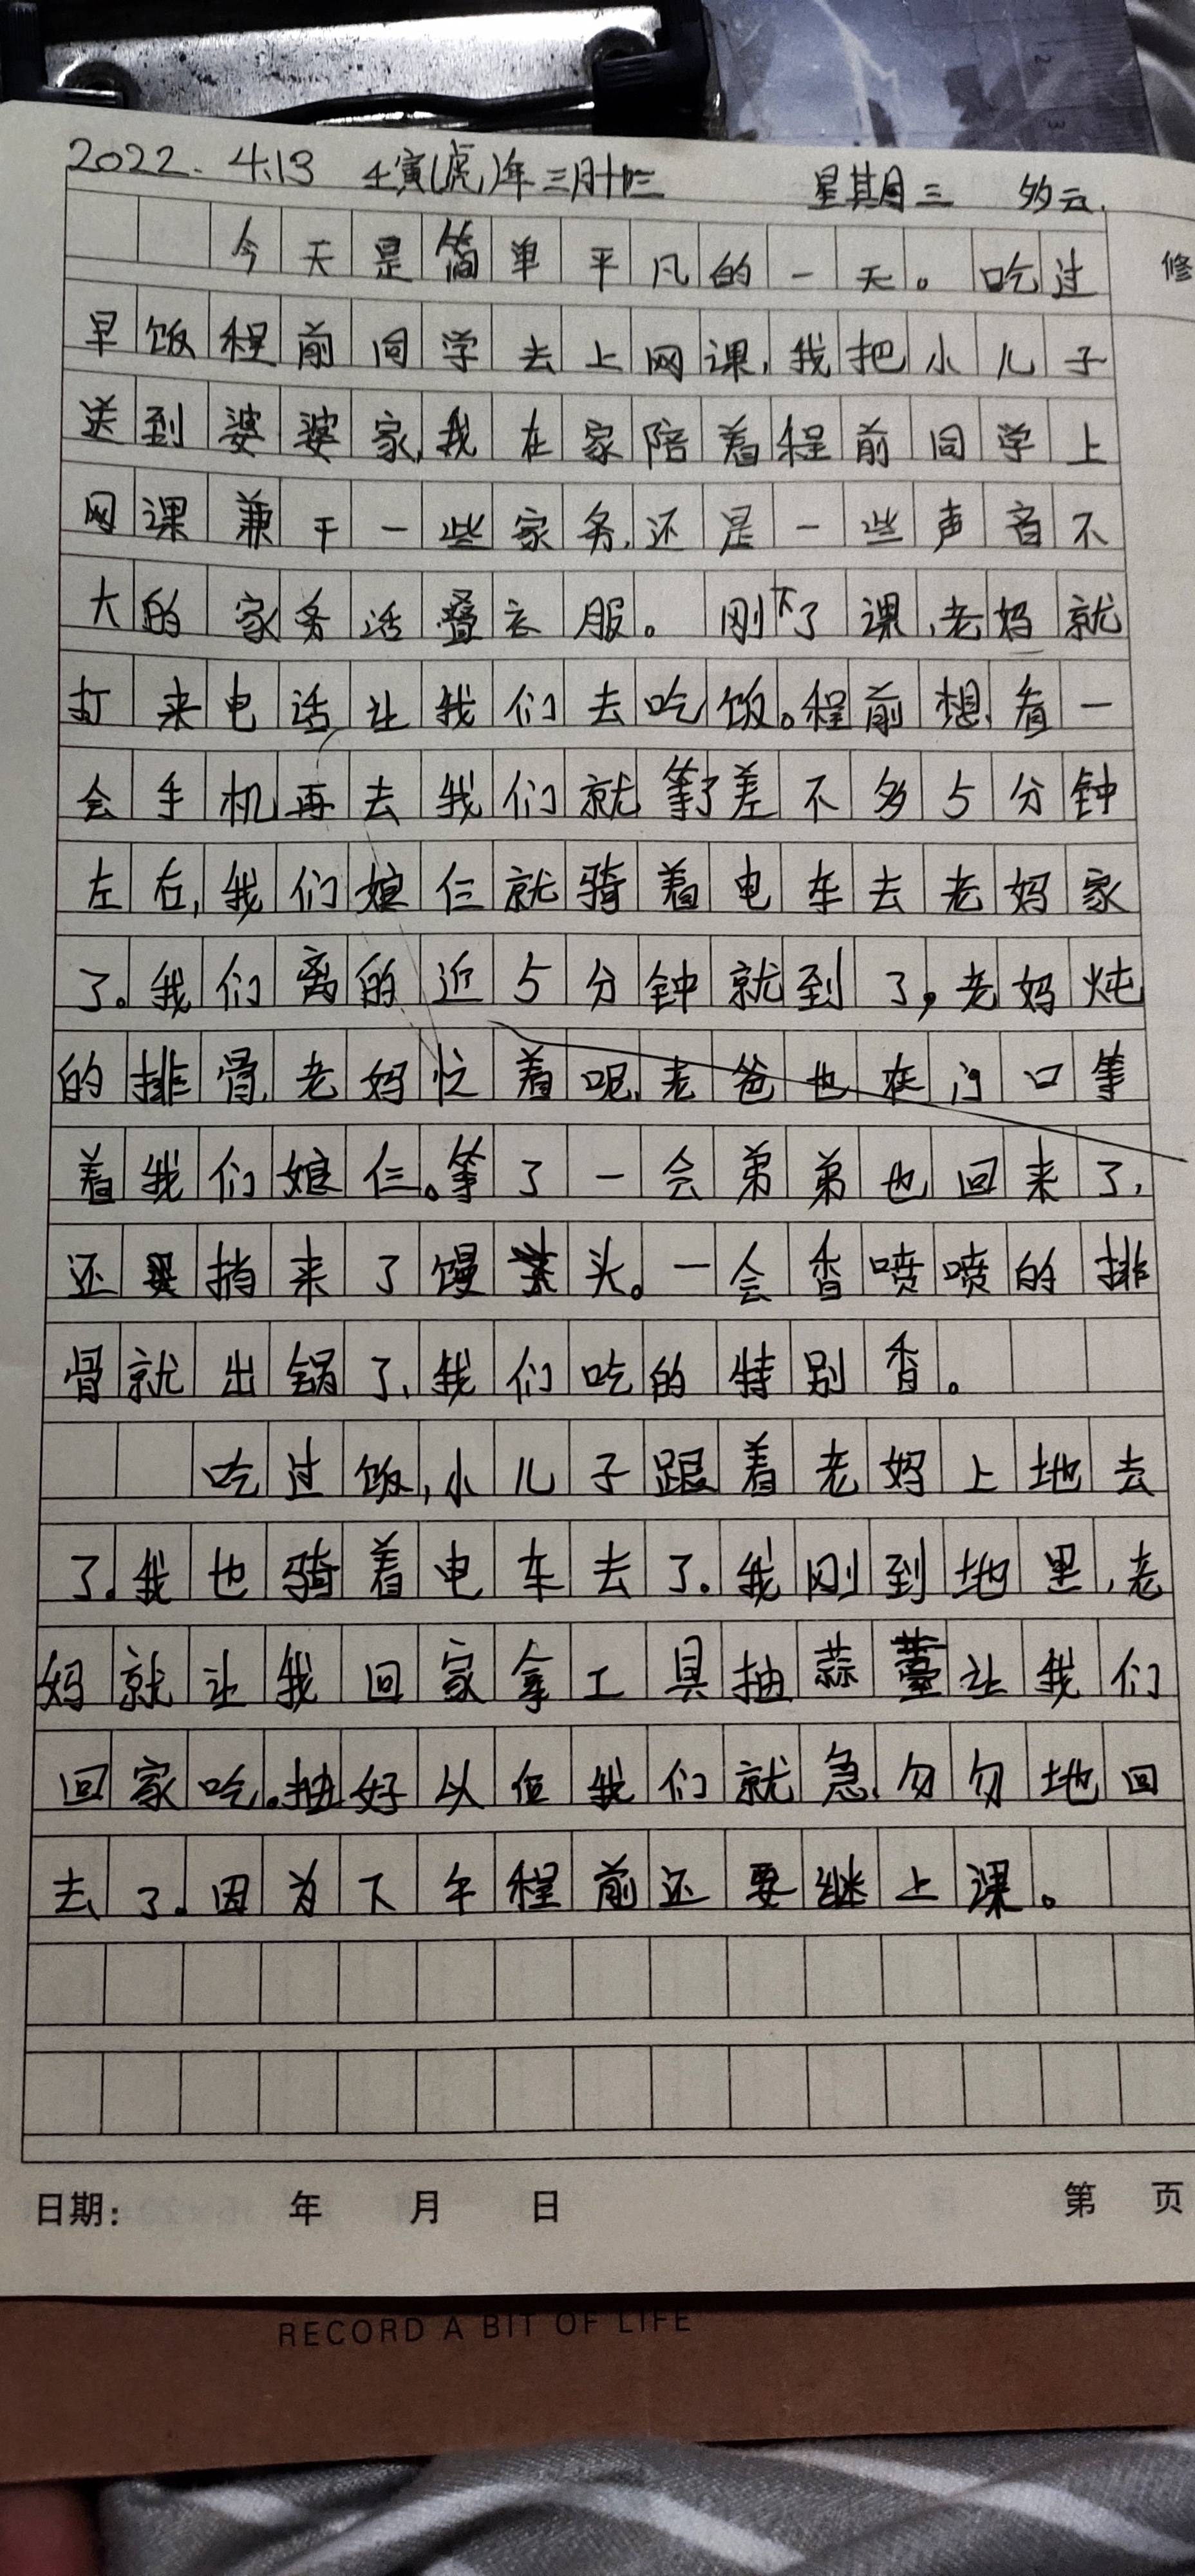 2022.4.13 壬寅(虎)年三月十三 星期三 多云.
今天是简单平凡的一天。吃过
修
早饭程前同学去上网课,我把小儿子
送到婆婆家,我在家陪着程前同学上
网课兼干一些家务,还是一些声音不
大的家务活叠衣服。刚下了课,老妈就
打来电话让我们去吃饭。程前想看一
会手机再去我们就等了差不多5分钟
左右,我们娘仨就骑着电车去老妈家
了。我们离的近5分钟就到了,老妈炖
的排骨,老妈忙着呢,老爸也在门口等
着我们娘仨。等了一会弟弟也回来了,
还捎来了馒头。一会香喷喷的排
骨就出锅了,我们吃的特别香。
吃过饭,小儿子跟着老妈上地去
了.我也骑着电车去了.我刚到地里,老
妈就让我回家拿工具抽蒜薹让我们
回家吃.抽好以后我们就急匆匆地回
去了.因为下午程前还要继上课。
日期: 年 月 日
第 页
RECORD A BIT OF LIFE